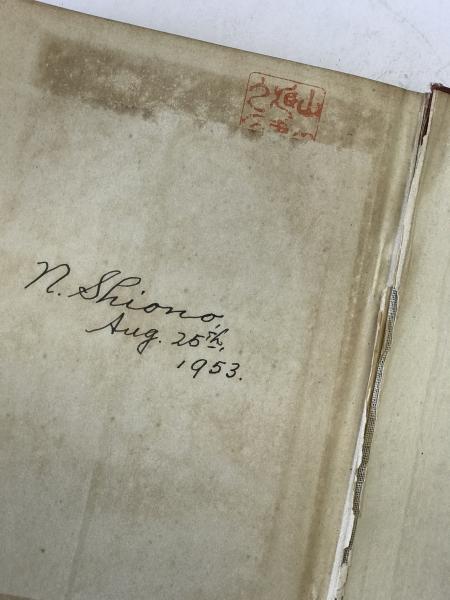 N. Shiono,
Aug. 25th,
1953.